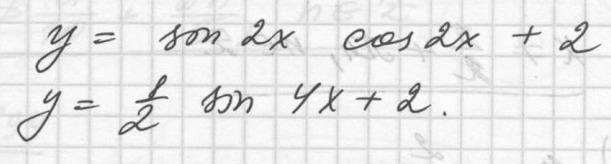 y = sin 2x cos 2x + 2
y = 1/2 sin 4x + 2.